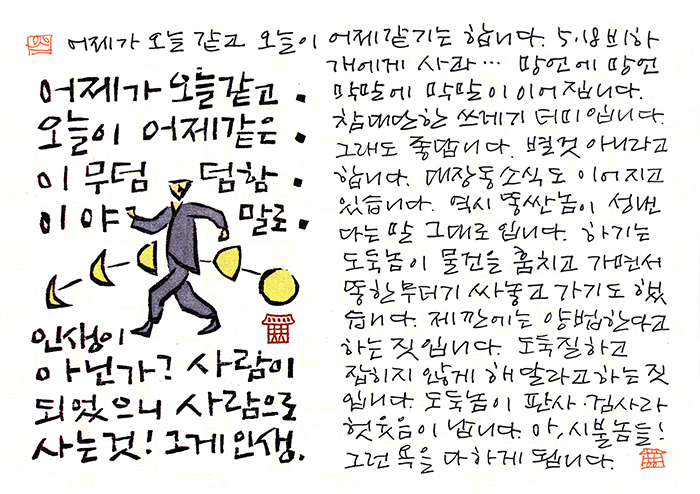 어제가 오늘 같고 오늘이 어제같기는 합니다. 5·18 비하
개에게 사과… 망언에 망언
막말에 막말이 이어집니다.
참 대단한 쓰레기 더미입니다.
그래도 좋답니다. 별것 아니라고
합니다. 대장동소식도 이어지고
있습니다. 역시 똥싼놈이 성낸
다는 말 그대로 입니다. 하기는
도둑놈이 물건을 훔치고 가면서
똥한무더기 싸놓고 가기도 했
습니다. 제깐에는 양법한다고
하는 짓입니다. 도둑질하고
잡히지 않게 해달라고 하는 짓
입니다. 도둑놈이 판사·검사라
헛웃음이 납니다. 아, 시불놈들!
그런 욕을 다 하게 됩니다.
어제가 오늘같고.
오늘이 어제같은.
이 무덤덤함.
이야말로.
인생이
아닌가? 사람이
되었으니 사람으로
사는것! 그게인생.